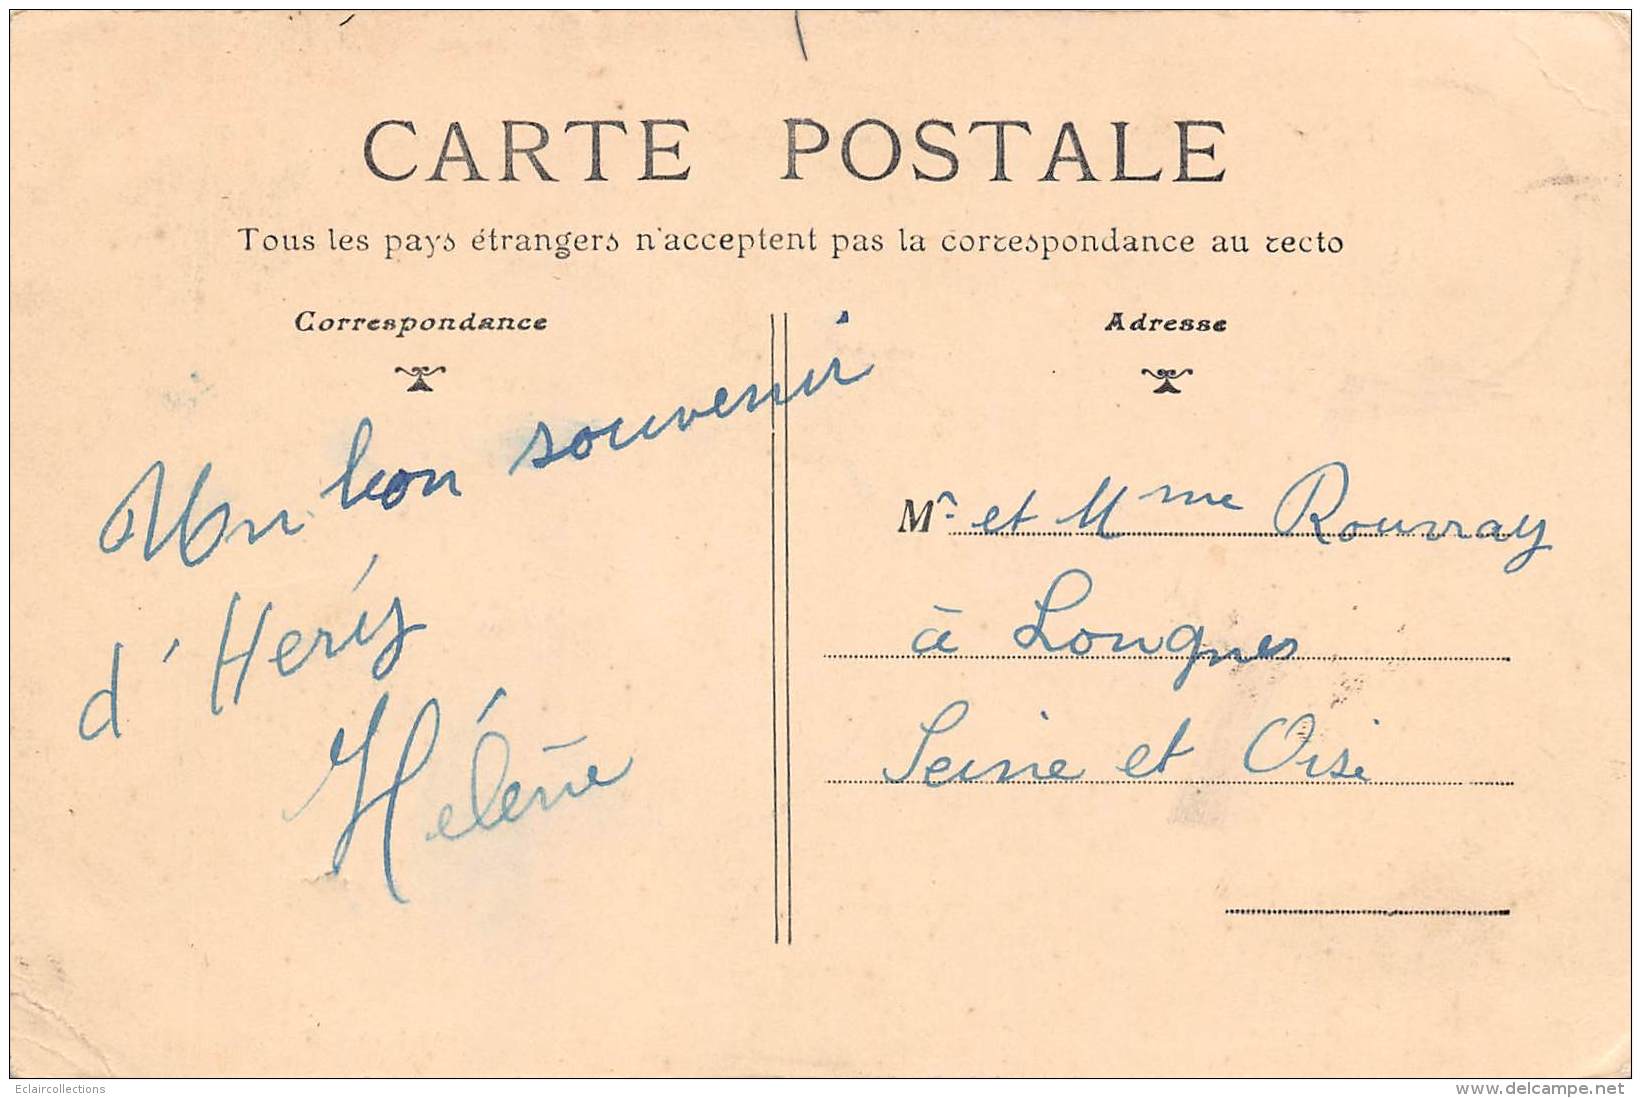 CARTE POSTALE
Tous les pays étrangers n'acceptent pas la correspondance au recto
Correspondance
Un bon souvenir
d'Héry
Hélène
Adresse
Mr et Mme Rouvray
à Longnes
Seine et Oise
Eclaircollections
www.delcampe.net